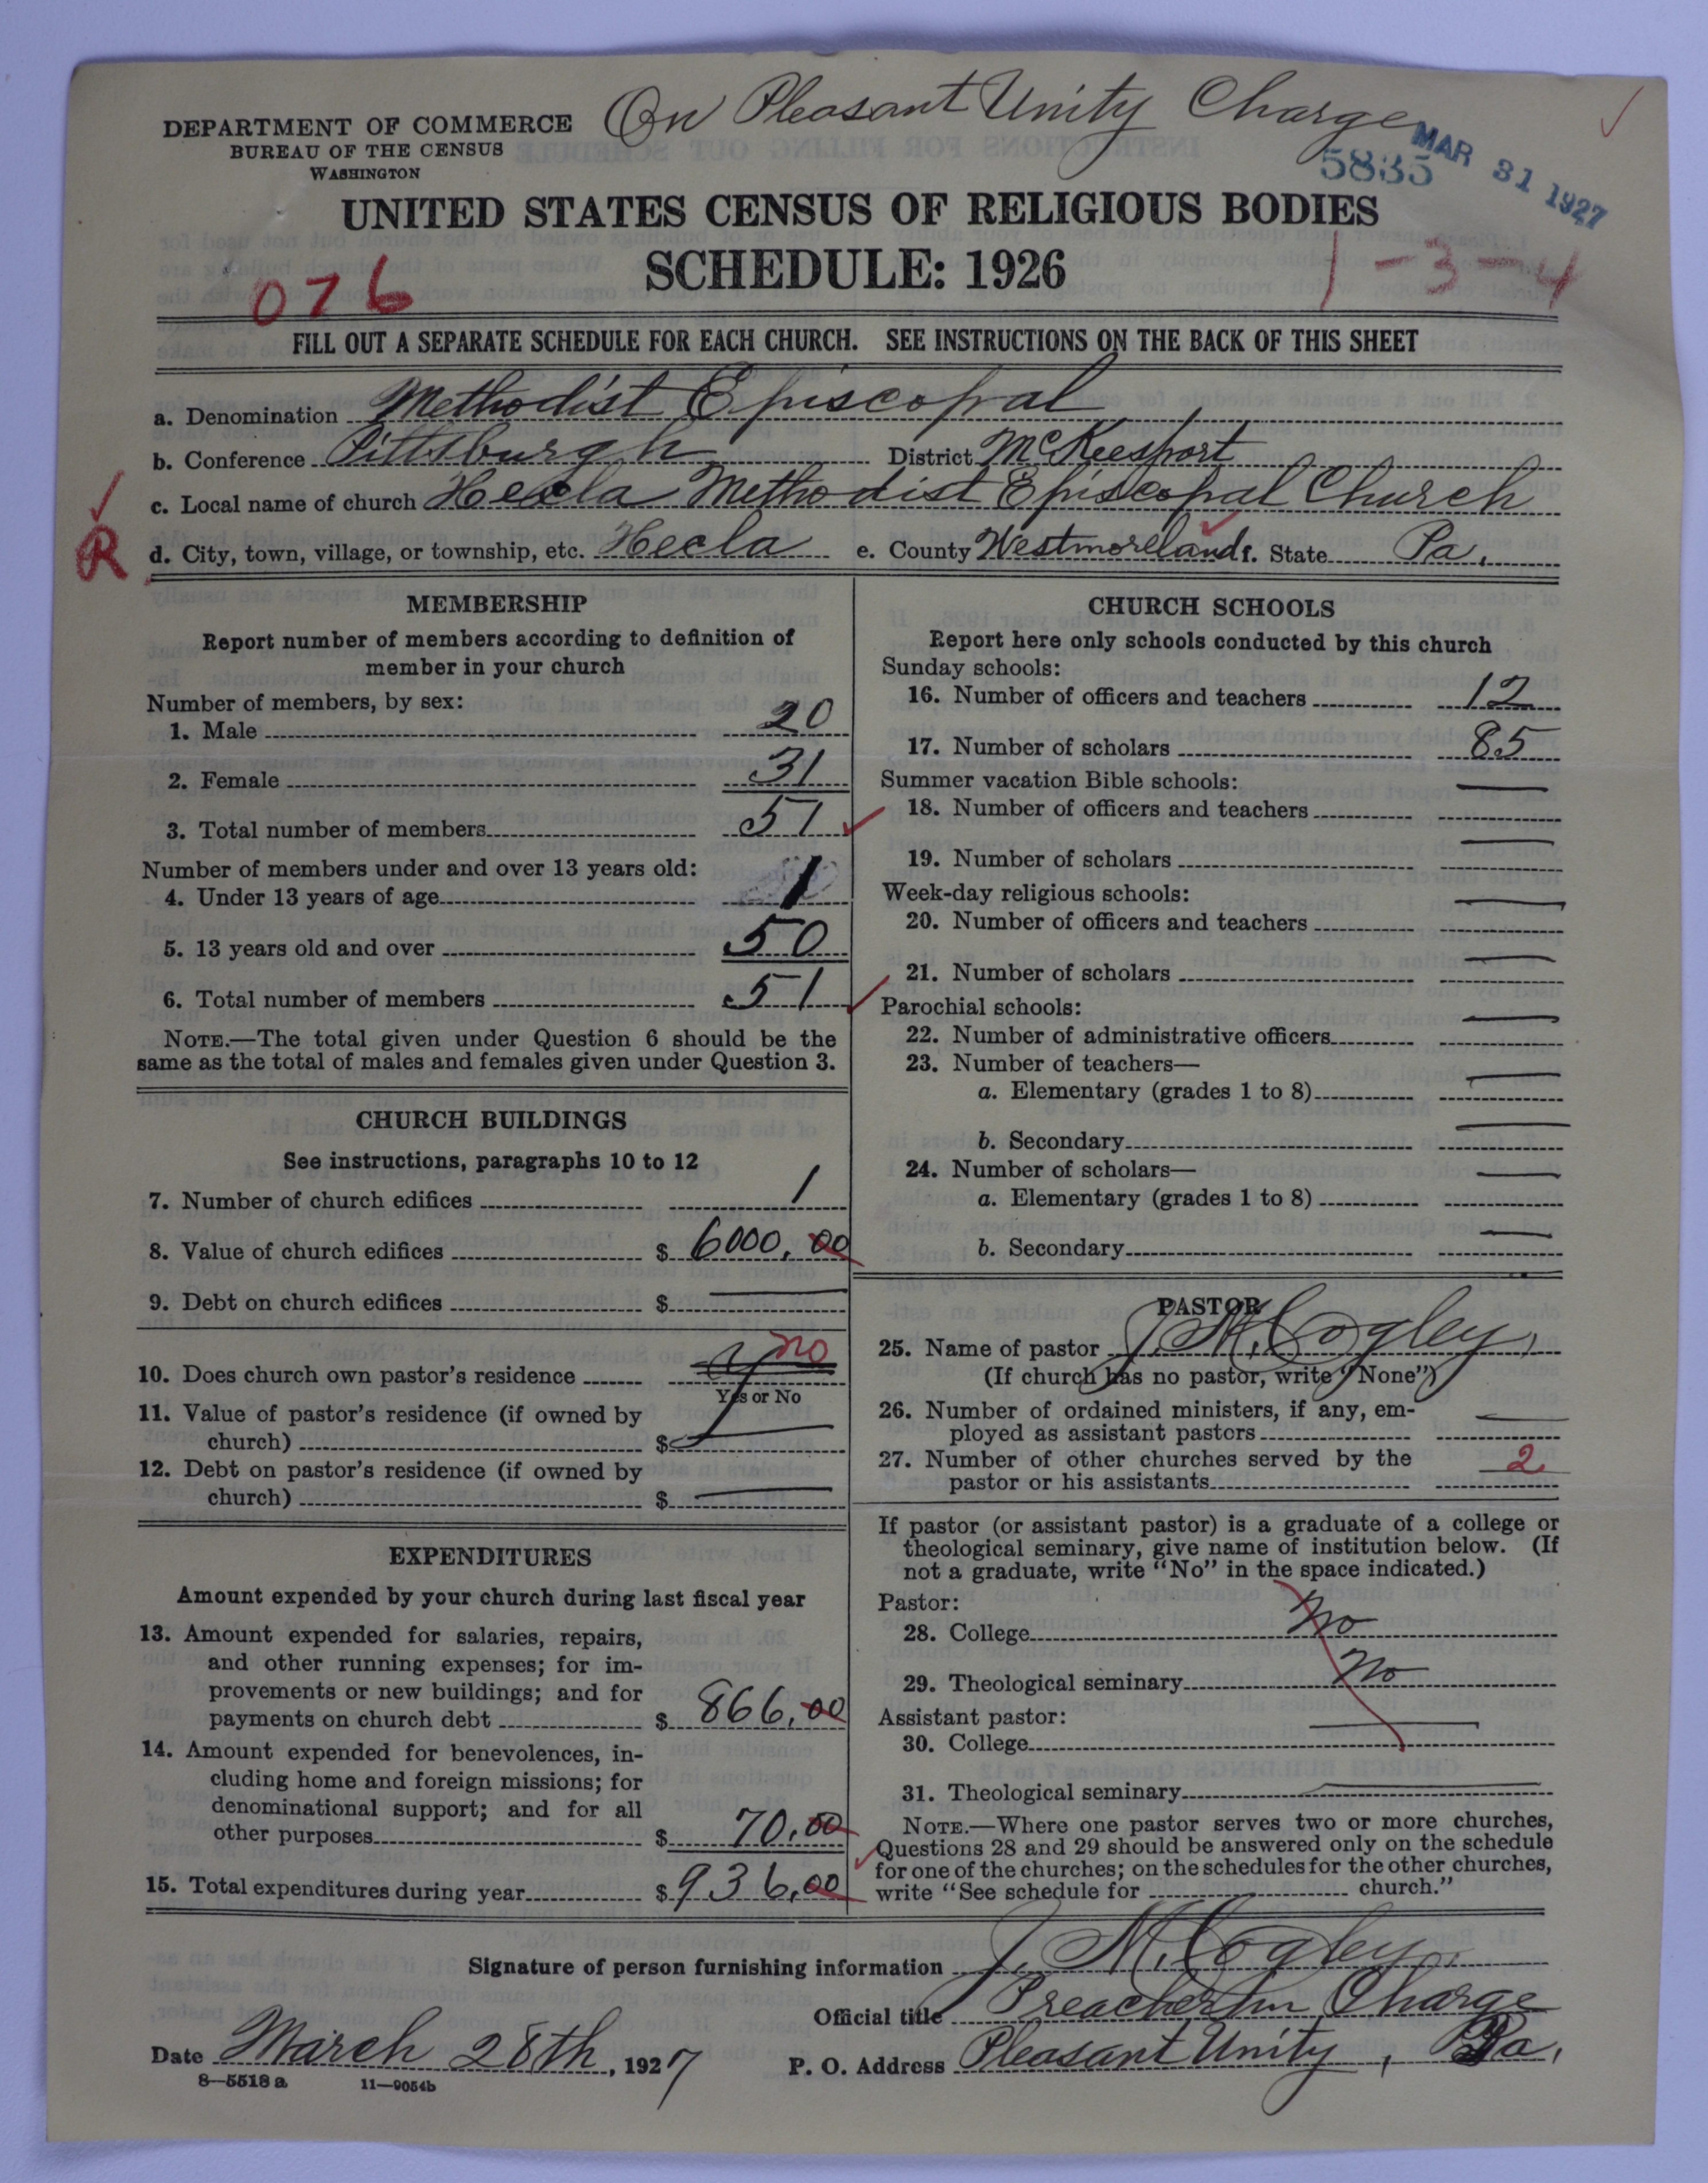 On Pleasant Unity Charge
DEPARTMENT OF COMMERCE
BUREAU OF THE CENSUS
WASHINGTON
5835
MAR 31 1927
UNITED STATES CENSUS OF RELIGIOUS BODIES
SCHEDULE: 1926
076
1-3-4
FILL OUT A SEPARATE SCHEDULE FOR EACH CHURCH. SEE INSTRUCTIONS ON THE BACK OF THIS SHEET
a. Denomination Methodist Episcopal
b. Conference Pittsburgh District McKeesport
c. Local name of church Hecla Methodist Episcopal Church
R
d. City, town, village, or township, etc. Hecla e. County Westmoreland f. State Pa.
MEMBERSHIP
Report number of members according to definition of
member in your church
Number of members, by sex:
1. Male 20
2. Female 31
3. Total number of members 51
Number of members under and over 13 years old:
4. Under 13 years of age 1
5. 13 years old and over 50
6. Total number of members 51
NOTE.—The total given under Question 6 should be the
same as the total of males and females given under Question 3.
CHURCH BUILDINGS
See instructions, paragraphs 10 to 12
7. Number of church edifices 1
8. Value of church edifices $ 6000.00
9. Debt on church edifices $
10. Does church own pastor's residence no
Yes or No
11. Value of pastor's residence (if owned by
church) $
12. Debt on pastor's residence (if owned by
church) $
EXPENDITURES
Amount expended by your church during last fiscal year
13. Amount expended for salaries, repairs,
and other running expenses; for im-
provements or new buildings; and for
payments on church debt $ 866.00
14. Amount expended for benevolences, in-
cluding home and foreign missions; for
denominational support; and for all
other purposes $ 70.00
15. Total expenditures during year $ 936.00
CHURCH SCHOOLS
Report here only schools conducted by this church
Sunday schools:
16. Number of officers and teachers 12
17. Number of scholars 85
Summer vacation Bible schools:
18. Number of officers and teachers
19. Number of scholars
Week-day religious schools:
20. Number of officers and teachers
21. Number of scholars
Parochial schools:
22. Number of administrative officers
23. Number of teachers—
a. Elementary (grades 1 to 8)
b. Secondary
24. Number of scholars—
a. Elementary (grades 1 to 8)
b. Secondary
PASTOR
25. Name of pastor J. M. Cogley
(If church has no pastor, write "None")
26. Number of ordained ministers, if any, em-
ployed as assistant pastors
27. Number of other churches served by the
pastor or his assistants 2
If pastor (or assistant pastor) is a graduate of a college or
theological seminary, give name of institution below. (If
not a graduate, write "No" in the space indicated.)
Pastor:
28. College No
29. Theological seminary No
Assistant pastor:
30. College
31. Theological seminary
NOTE.—Where one pastor serves two or more churches,
Questions 28 and 29 should be answered only on the schedule
for one of the churches; on the schedules for the other churches,
write "See schedule for church."
Signature of person furnishing information J. M. Cogley.
Official title Preacher in Charge
Date March 28th, 1927 P. O. Address Pleasant Unity, Pa.
8-5518 a 11-9054b